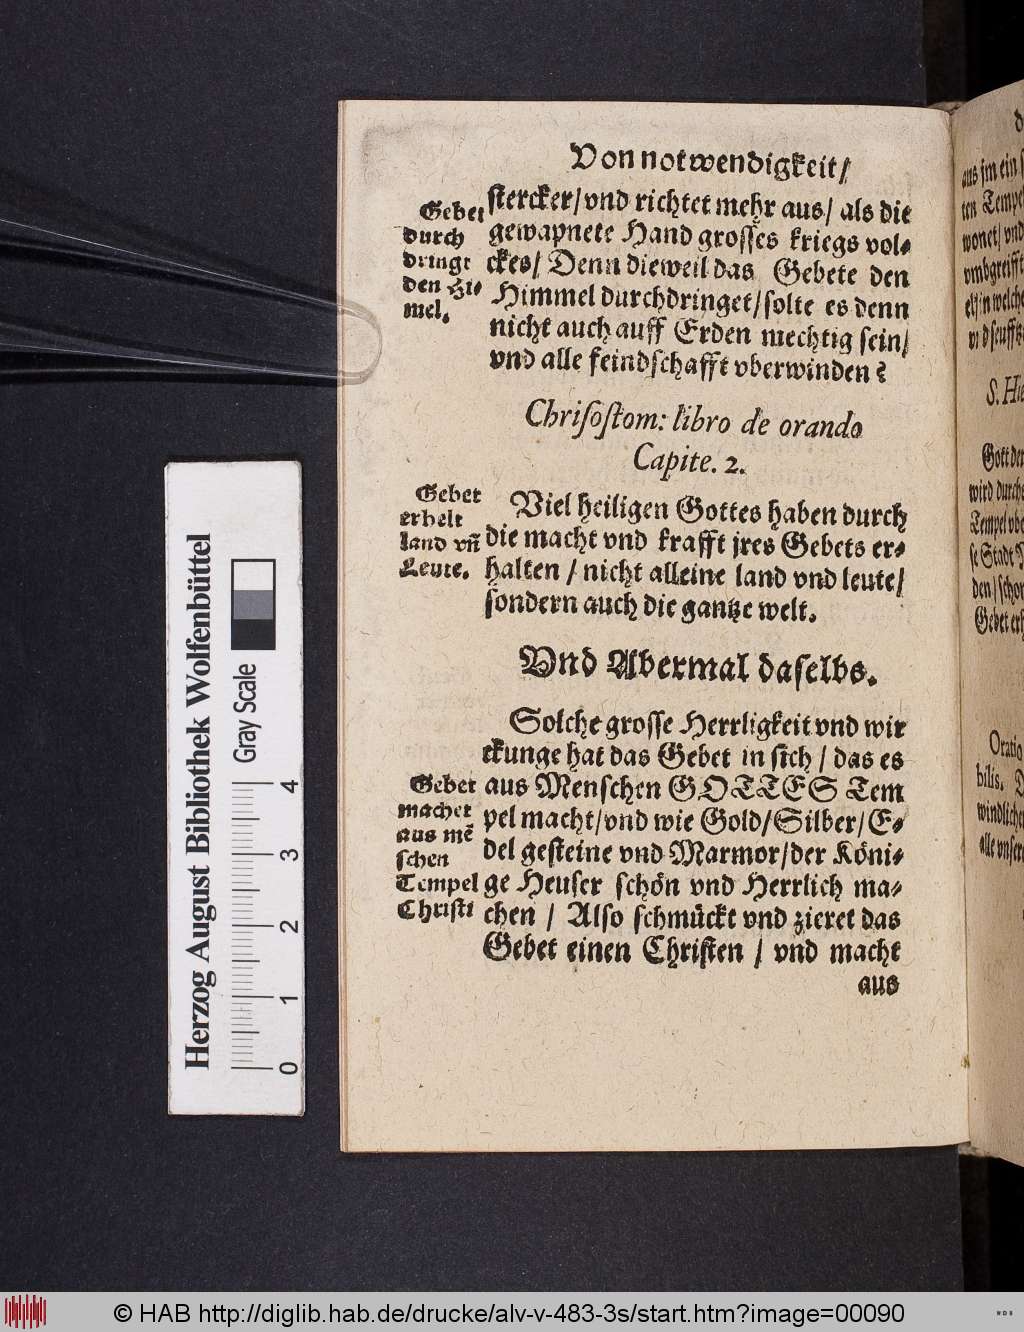 Von notwendigkeit/
stercker/vnd richtet mehr aus/ als die
gewapnete Hand grosses kriegs vol-
ckes/ Denn dieweil das Gebete den
Himmel durchdringet/solte es denn
nicht auch auff Erden mechtig sein/
vnd alle feindschafft vberwinden?
Gebet
durch
dringt
den Hi-
mel.
Chrisostom: libro de orando
Capite. 2.
Viel heiligen Gottes haben durch
die macht vnd krafft jres Gebets er-
halten / nicht alleine land vnd leute/
sondern auch die gantze welt.
Gebet
erhelt
land vñ
Leute.
Vnd Abermal daselbs.
Solche grosse Herrligkeit vnd wir
ckunge hat das Gebet in sich / das es
aus Menschen GOTTES Tem
pel macht/vnd wie Gold/Silber/E-
del gesteine vnd Marmor/der Köni-
ge Heuser schön vnd Herrlich ma-
chen / Also schmückt vnd zieret das
Gebet einen Christen / vnd macht
aus
Gebet
machet
aus mẽ
schen
Tempel
Christi
aus jm ein
ten Tempel
wonet/ vnd
vmbgreifft
welche
S. Hie
Gott der
wird durch
Tempel vbe
se Stadt
den/schon
Gebet erh
Oratio
bilis.
windliche
alle vnsere
Herzog August Bibliothek Wolfenbüttel
Gray Scale
0 1 2 3 4
© HAB http://diglib.hab.de/drucke/alv-v-483-3s/start.htm?image=00090